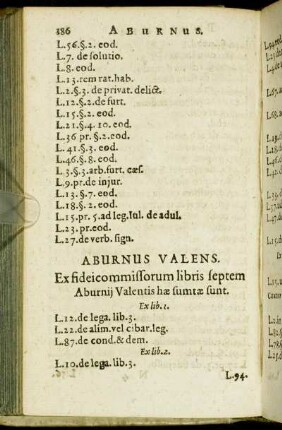 186 ABURNUS.
L.56.§.2. eod.
L.7. de solutio.
L.8. eod.
L.13.rem rat.hab.
L.2.§.3. de privat. delict.
L.12.§.2.de furt.
L.15.§.2. eod.
L.21.§.4. 10. eod.
L.36 pr. §.2.eod.
L. 41.§.3. eod.
L.46.§.8. eod.
L.3.§.3.arb.furt. cæs.
L.9.pr.de injur.
L.13.§.7. eod.
L.18.§.2. eod.
L.15.pr. 5.ad leg.Iul. de adul.
L.23.pr.eod.
L.27.de verb. sign.
ABURNUS VALENS.
Ex fideicommissorum libris septem
Aburnij Valentis hæ sumtæ sunt.
Ex lib.1.
L.12.de lega. lib.3.
L.22.de alim.vel cibar.leg.
L.87.de cond.& dem.
Ex lib.2.
L.10.de lega. lib.3.
L.94.